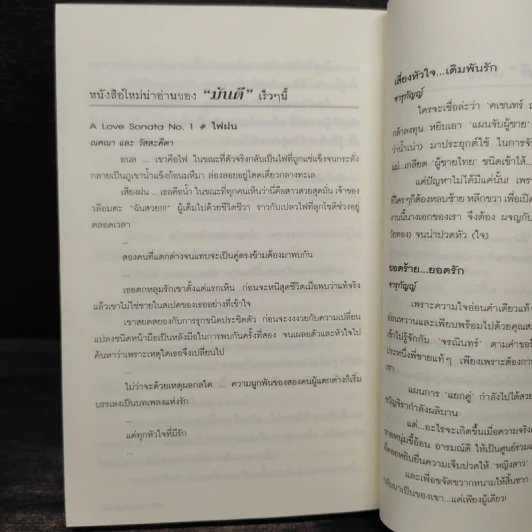 หนังสือใหม่น่าอ่านของ “มันดี” เร็วๆนี้
A Love Sonata No. 1 # ไฟฝน
ณคณา และ วัสสะคีตา
อนล ... เขาคือไฟ ในขณะที่ตัวจริงกลับเป็นไฟที่ถูกแช่แข็งจนกระทั่ง
กลายเป็นภูเขาน้ำแข็งก้อนมหึมา ล่องลอยอยู่โดดเดี่ยวกลางทะเล
เสียงฝน ... เธอคือน้ำ ในขณะที่ทุกคนเห็นว่านี่คือสาวสวยสุดมั่น เจ้าของ
วลีอมตะ “ฉันสวย!!!” ผู้เต็มไปด้วยชีวิตชีวา ราวกับเปลวไฟที่ลุกโชติช่วงอยู่
ตลอดเวลา
...
สองคนที่แตกต่างจนแทบจะเป็นคู่ตรงข้ามต้องมาพบกัน
...
เธอตกหลุมรักเขาตั้งแต่แรกเห็น ก่อนจะหนีสุดชีวิตเมื่อพบว่าแท้จริง
แล้วเขาไม่ใช่ชายในสเปคของเธออย่างที่เข้าใจ
เขาสยดสยองกับการรุกชนิดประชิดตัว ก่อนจะงงงวยกับความเปลี่ยน
แปลงชนิดหน้ามือเป็นหลังมือในการพบกันครั้งที่สอง จนเผลอตัวและหัวใจไป
ค้นหาว่าเพราะเหตุใดเธอจึงเปลี่ยนไป
...
ไม่ว่าจะด้วยเหตุผลกลใด ... ความผูกพันของสองคนผู้แตกต่างก็เริ่ม
บรรเลงเป็นบทเพลงแห่งรัก
...
แต่ทุกหัวใจที่มีรัก
...
เสี่ยงหัวใจ...เดิมพันรัก
จารุกัญญ์
ใครจะเชื่อล่ะว่า “คเชนทร์
กล้าลงทุน หยิบเอา “แผนจับผู้ชาย”
มาประยุกต์ใช้ ในการจั
แม่...เกลียด “ผู้ชายไทย” ชนิดเข้าไส้...
แต่ปัญหาไม่ได้มีแค่นั้น! เพร
ที่ใครๆก็ต้องหลบซ้าย หลีกขวา เพื่อเปิด
งานนี้นางเอกของเรา จึงต้อง ผจญกับ
จนน่าปวดหัว (ใจ)
ยอดร้าย...ยอดรัก
จารุกัญญ์
เพราะความใจอ่อนคำเดียวแท้
อ่อนหวานและเพียบพร้อมไปด้วยคุณส
เข้าไปรู้จักกับ “จรณินทร์” ตามคำขอร้
ประหนึ่งพี่ชายแท้ๆ เพียงเพราะต้องการ
เขา
แผนการ “แยกคู่” กำลังไปได้สวย
ขวัญจิรากำลังผลิบาน
แต่...อะไรจะเกิดขึ้นเมื่อความจริง
ชายหนุ่มขี้อ้อน อารมณ์ดี ให้เป็นศูนย์รวมแ
ที่คอยหยิบยื่นความเจ็บปวดให้ ‘หญิงสาว’
และเพื่อขจัดขวากหนามให้สิ้นซาก
กลับมาเป็นของเขา...แต่เพียงผู้เดียว!